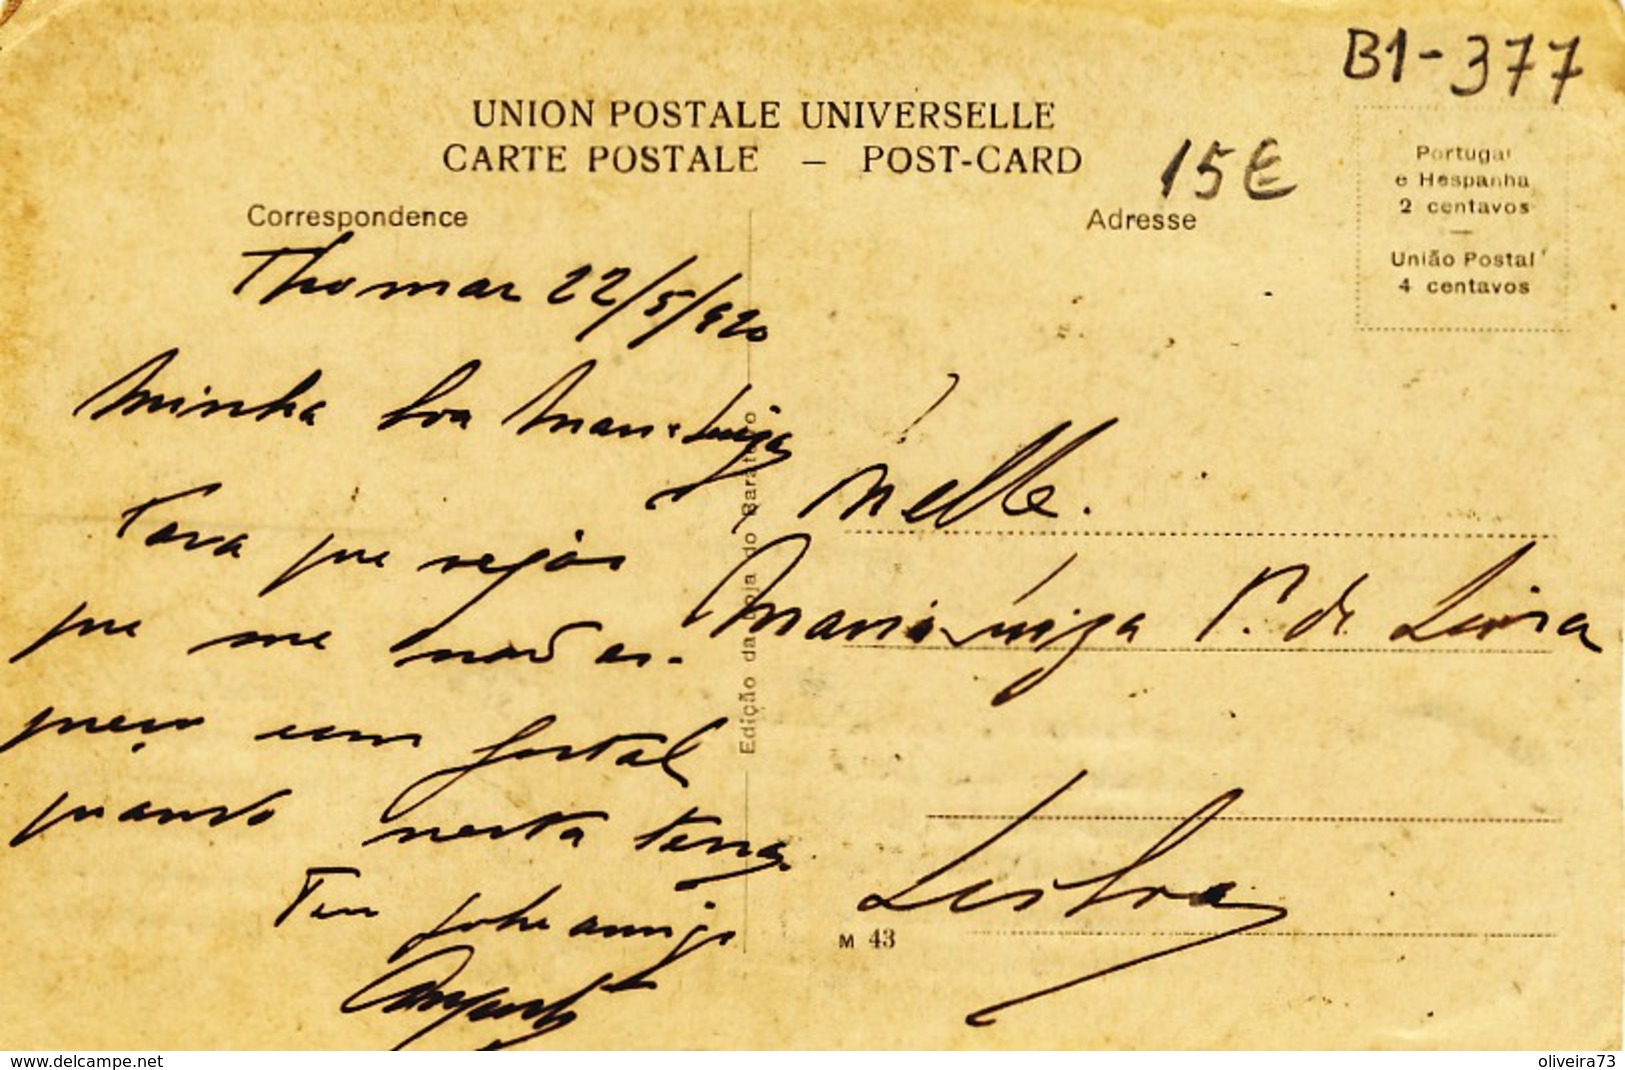 B1-377
UNION POSTALE UNIVERSELLE
CARTE POSTALE — POST-CARD
15€
Portugal
e Hespanha
2 centavos
—
União Postal
4 centavos
Correspondence
Adresse
Thomar 22/5/920
Minha boa Maria Luiza
Para que vejas
que me não es-
queço um postal
quando nesta terra
Teu pobre amigo
Augusto
Edição da Loja do Barateiro
Melle.
Maria Luiza P. de Lima
Lisboa
M 43
www.delcampe.net
oliveira73